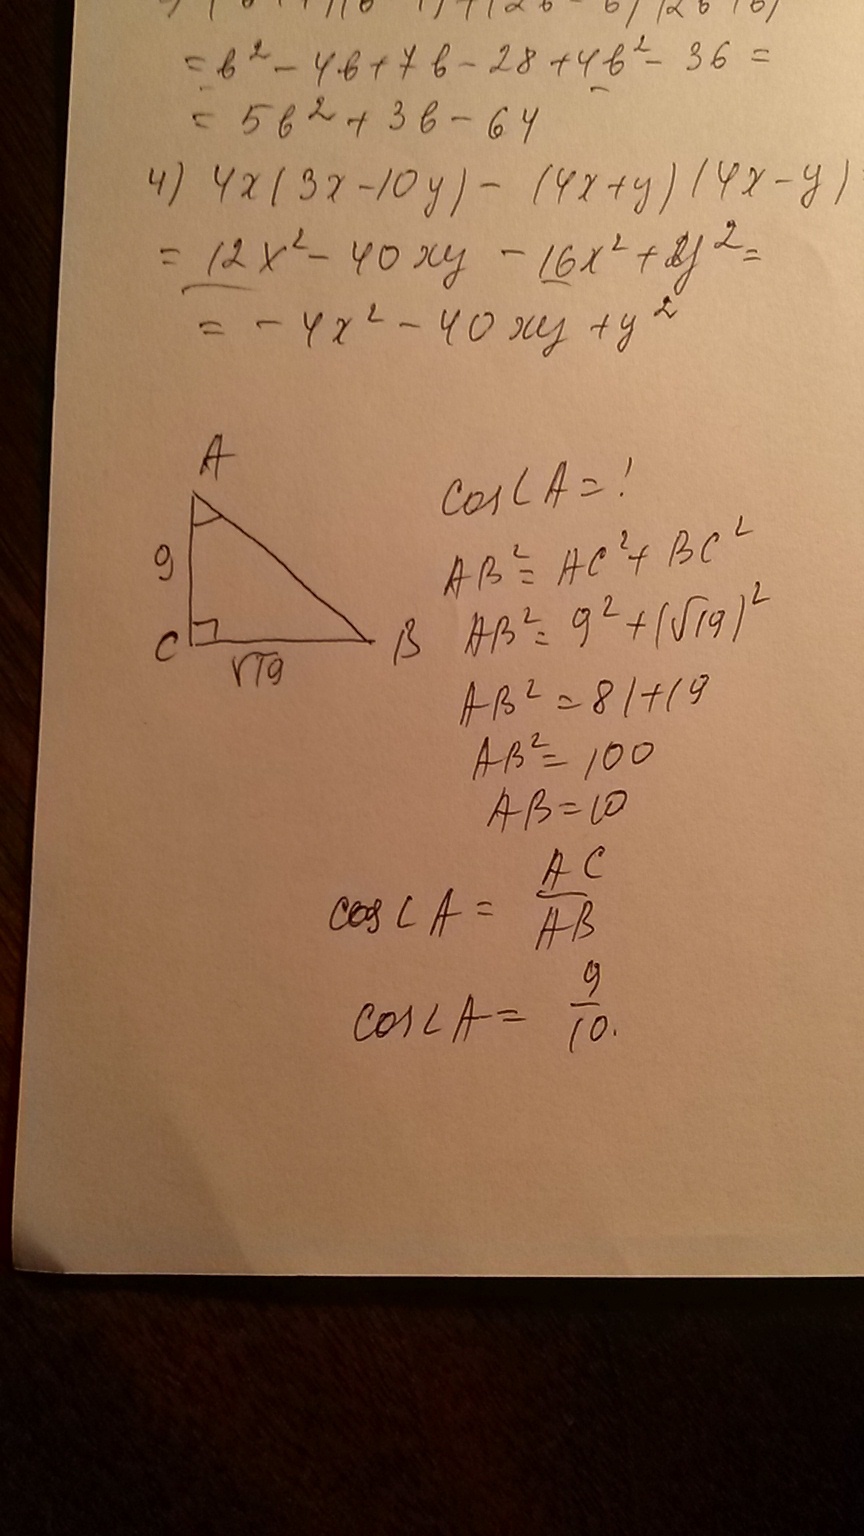 = b² - 4b + 7b - 28 + 4b² - 36 =
= 5b² + 3b - 64
4) 4x(3x - 10y) - (4x + y)(4x - y)
= 12x² - 40xy - 16x² + y² =
= -4x² - 40xy + y²
A
9
C
√19
B
cos∠A = ?
AB² = AC² + BC²
AB² = 9² + (√19)²
AB² = 81 + 19
AB² = 100
AB = 10
cos∠A = AC/AB
cos∠A = 9/10.